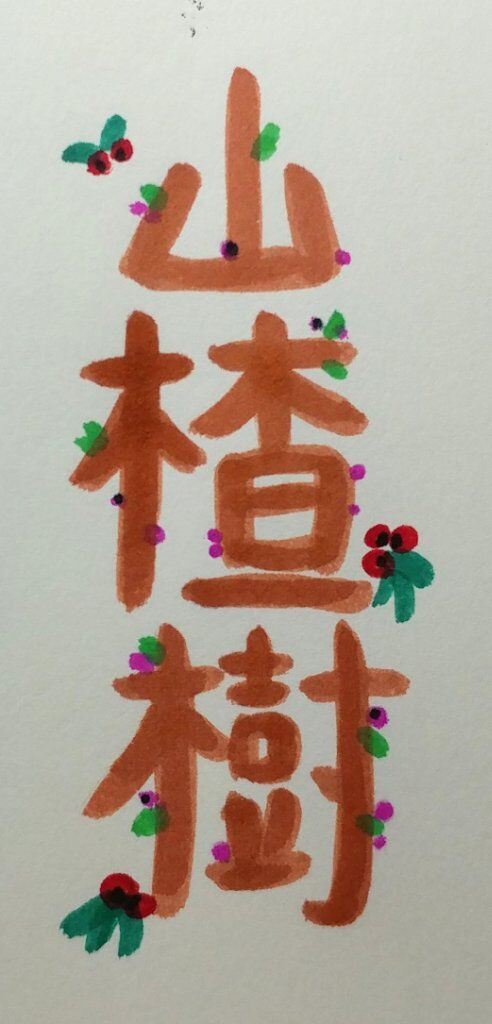 山楂樹